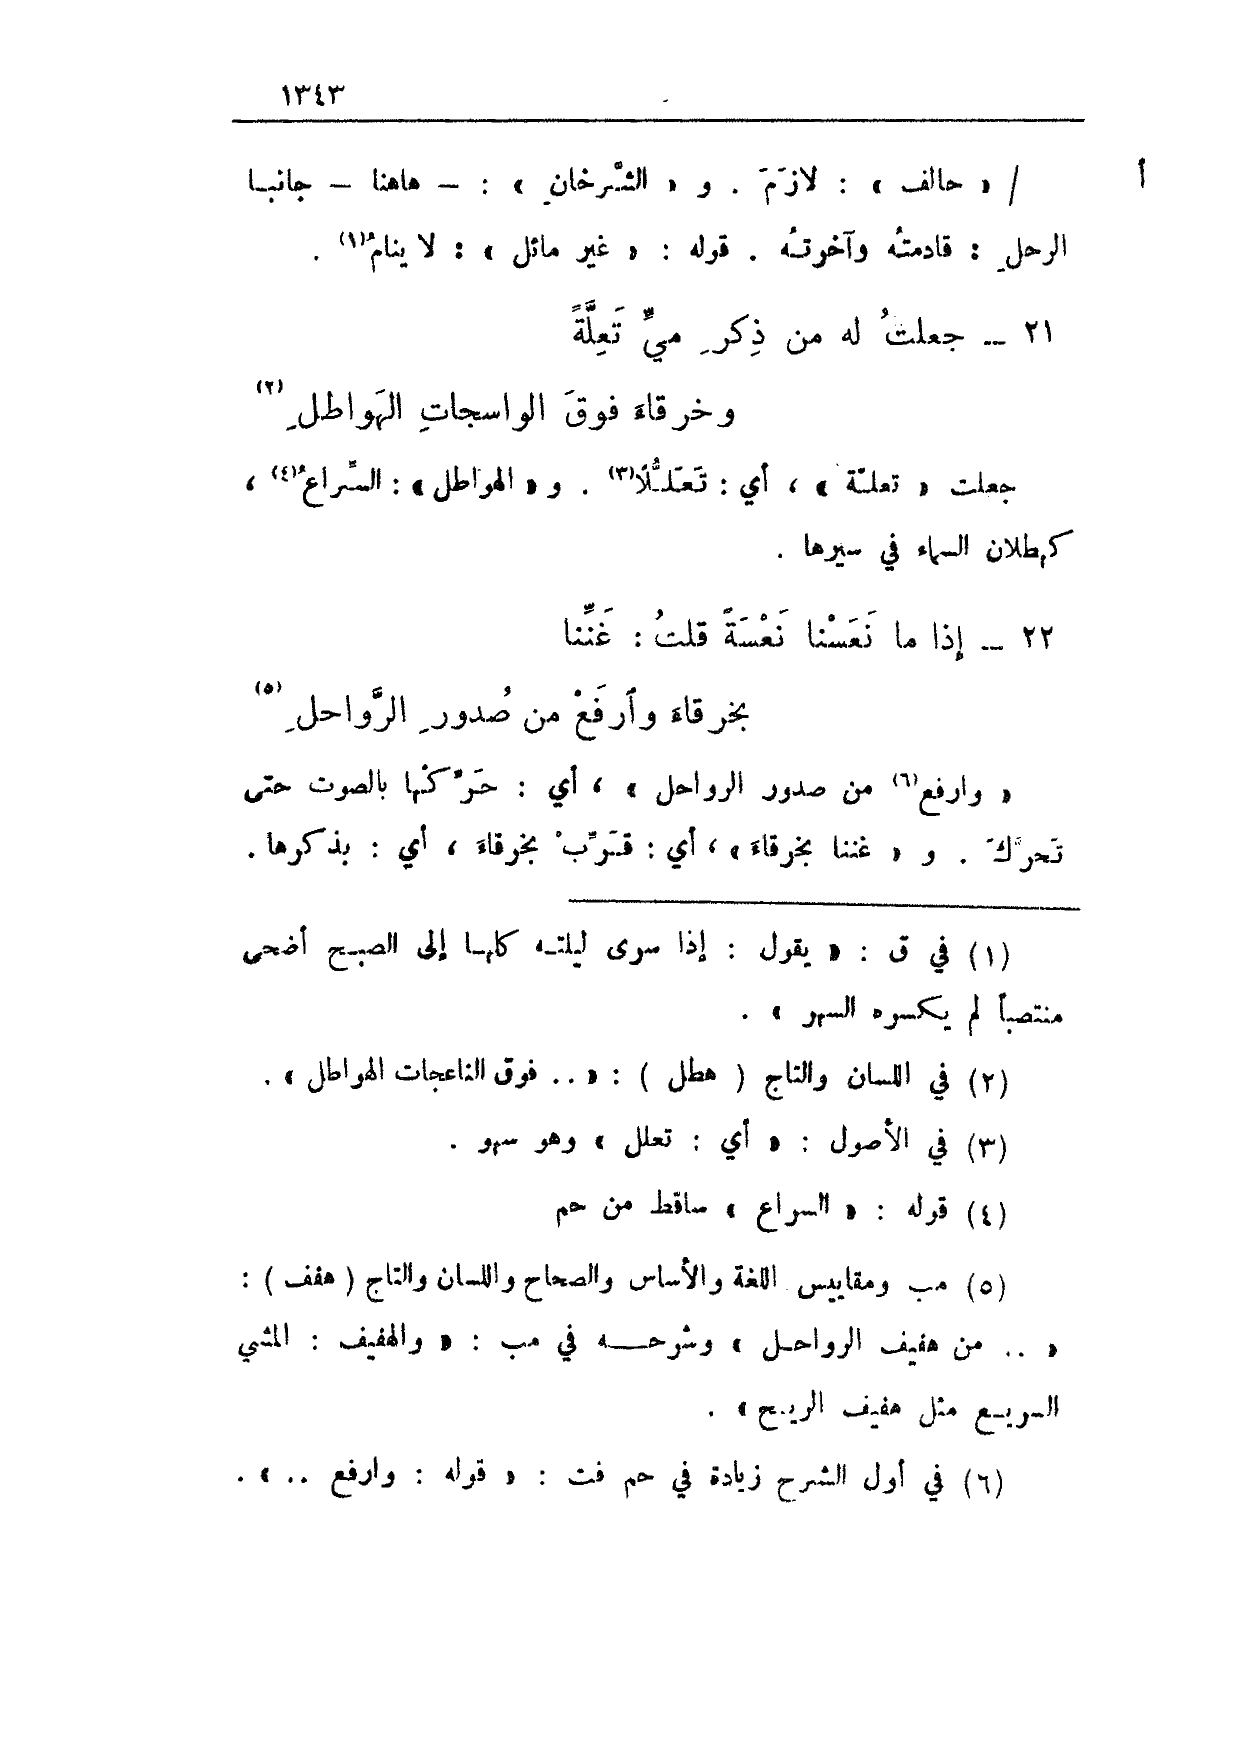 ١٣٤٣
أ
/ « حالف » : لازَمَ . و « الشَّرخانِ » : – هاهنا – جانبا
الرحلِ : قادمتُه وآخرتُه . قوله : « غير مائل » : لا ينامُ(١) .
٢١ – جعلتُ له من ذِكرِ ميٍّ تَعِلَّةً
وخرقاءَ فوقَ الواسجاتِ الهَواطلِ(٢)
جعلت « تعلـّة » ، أي : تَعَلُّلًا(٣) . و « الهواطل » : السِّراعُ(٤) ،
كهطلان السماء في سيرها .
٢٢ – إذا ما نَعَسْنا نَعْسَةً قلتُ : غَنِّنا
بخرقاءَ وٱرفَعْ من صُدورِ الرَّواحلِ(٥)
« وارفع(٦) من صدور الرواحل » ، أي : حَرِّكْها بالصوت حتى
تَحرَّكَ . و « غننا بخرقاءَ » ، أي : قَرِّبْ بخرقاءَ ، أي : بذكرها .
(١) في ق : « يقول : إذا سرى ليلته كلها إلى الصبح أضحى
منتصباً لم يكسره السهر » .
(٢) في اللسان والتاج ( هطل ) : « .. فوق الناعجات الهواطل » .
(٣) في الأصول : « أي : تعلل » وهو سهو .
(٤) قوله : « السراع » ساقط من حم
(٥) مب ومقاييس اللغة والأساس والصحاح واللسان والتاج ( هفف ) :
« .. من هفيف الرواحل » وشرحه في مب : « والهفيف : المشي
السريع مثل هفيف الريح » .
(٦) في أول الشرح زيادة في حم فت : « قوله : وارفع .. » .